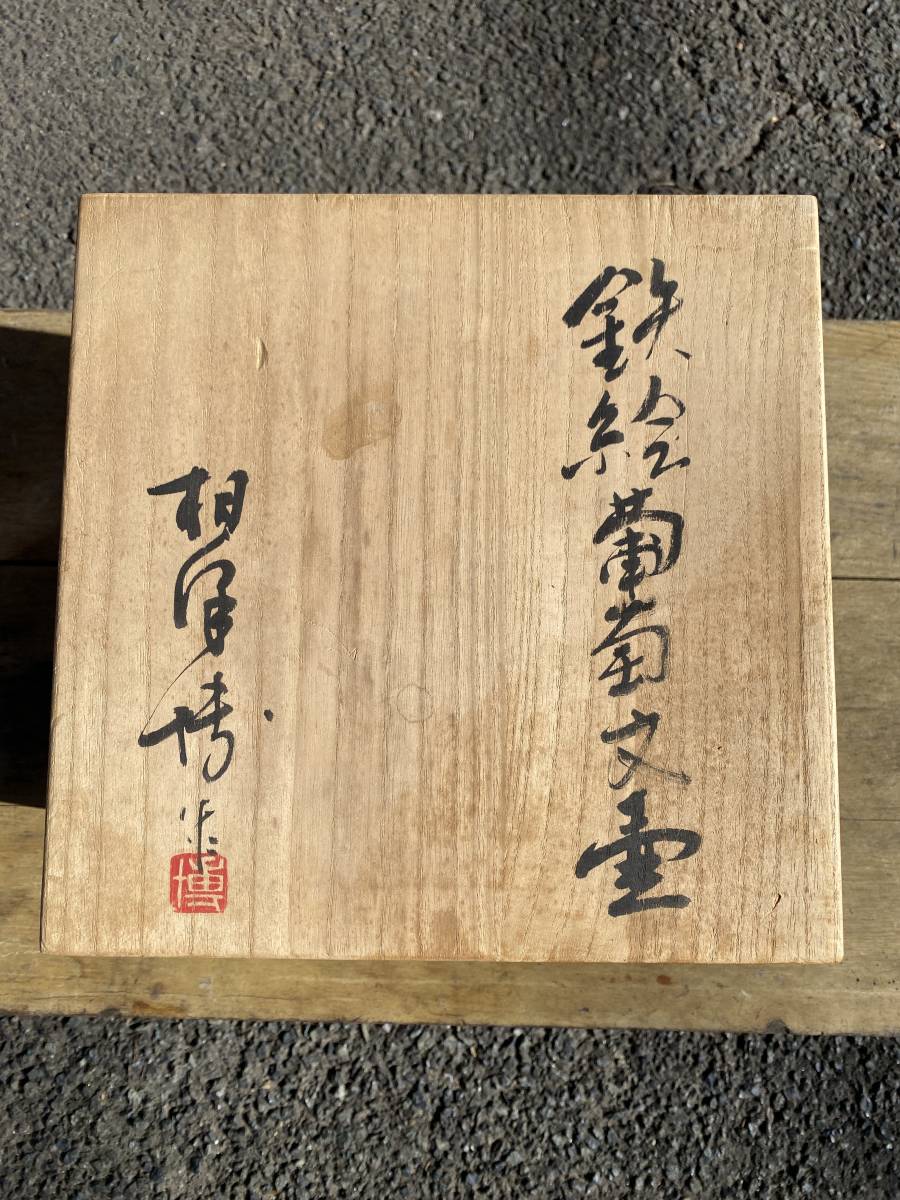 鉄絵葡萄文壷
相澤博作
博